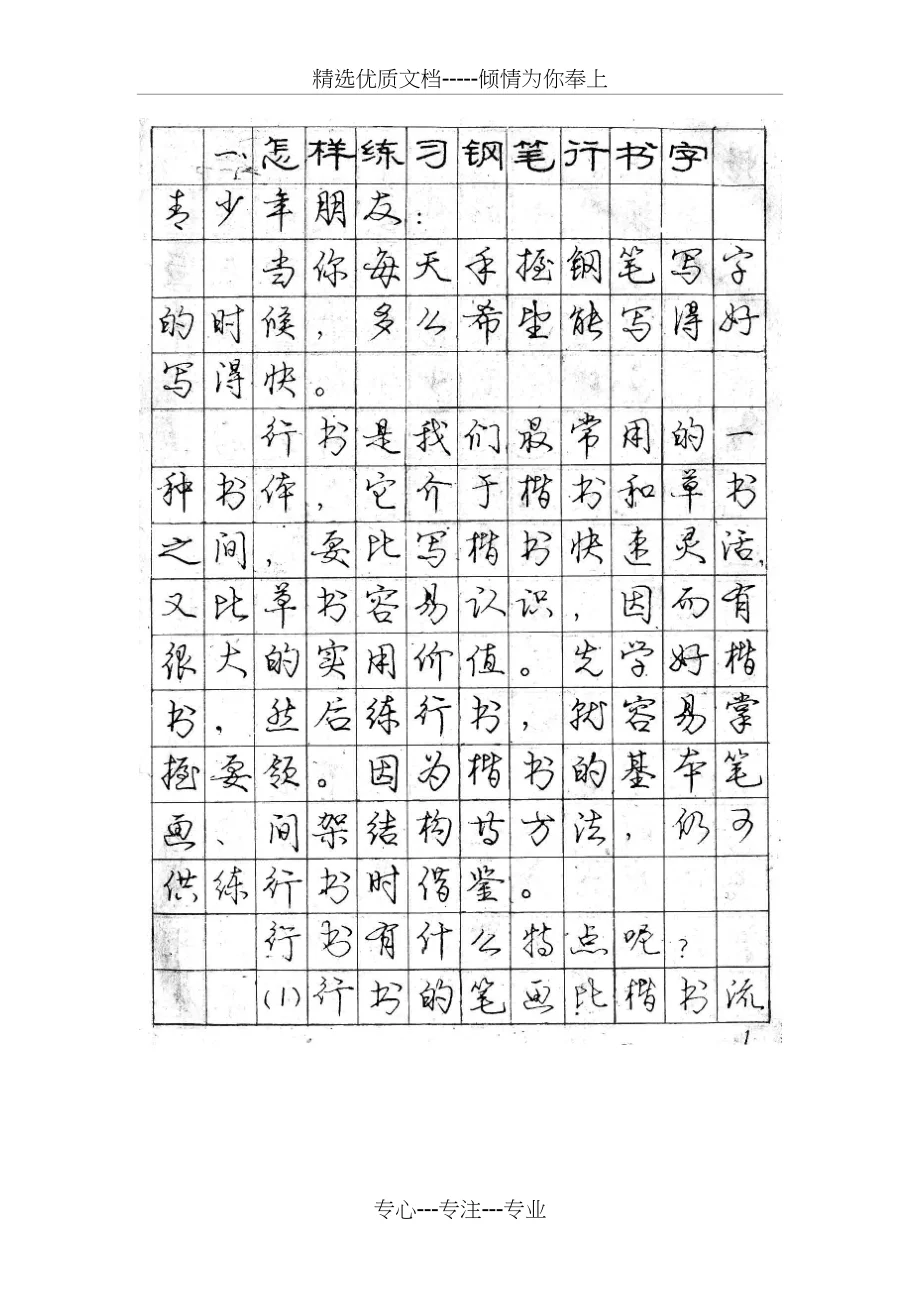 精选优质文档-----倾情为你奉上
一、怎样练习钢笔行书字
青少年朋友：
当你每天手握钢笔写字
的时候，多么希望能写得好
写得快。
行书是我们最常用的一
种书体，它介于楷书和草书
之间，要比写楷书快速灵活，
又比草书容易认识，因而有
很大的实用价值。先学好楷
书，然后练行书，就容易掌
握要领。因为楷书的基本笔
画、间架结构等方法，仍可
供练行书时借鉴。
行书有什么特点呢？
(1)行书的笔画比楷书流
1
专心---专注---专业